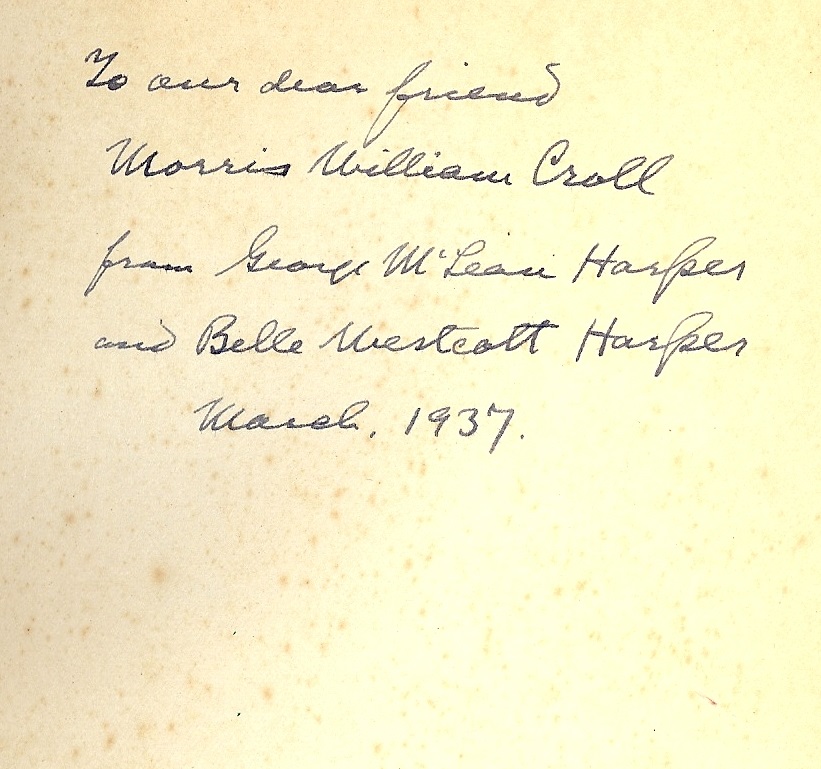 To our dear friend
Morris William Croll
from George McLean Harper
and Belle Westcott Harper
March, 1937.